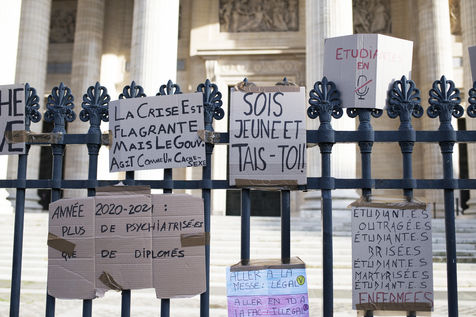 LA CRISE EST
FLAGRANTE
MAIS LE GOUV.
AGIT COMME UN CACHE-
SEXE
SOIS
JEUNE ET
TAIS-TOI!
ETUDIANTES
EN
ANNÉE 2020-2021 :
PLUS DE PSYCHIATRISÉ·E·S
QUE DE DIPLOMÉS
ALLER À LA
MESSE : LÉGAL
ALLER EN TD À
LA FAC : ILLÉGAL
ÉTUDIANT.E.S
OUTRAGÉES
ÉTUDIANT.E.S
BRISÉES
ÉTUDIANT.E.S
MARTYRISÉES
ÉTUDIANT.E.S
ENFERMÉES